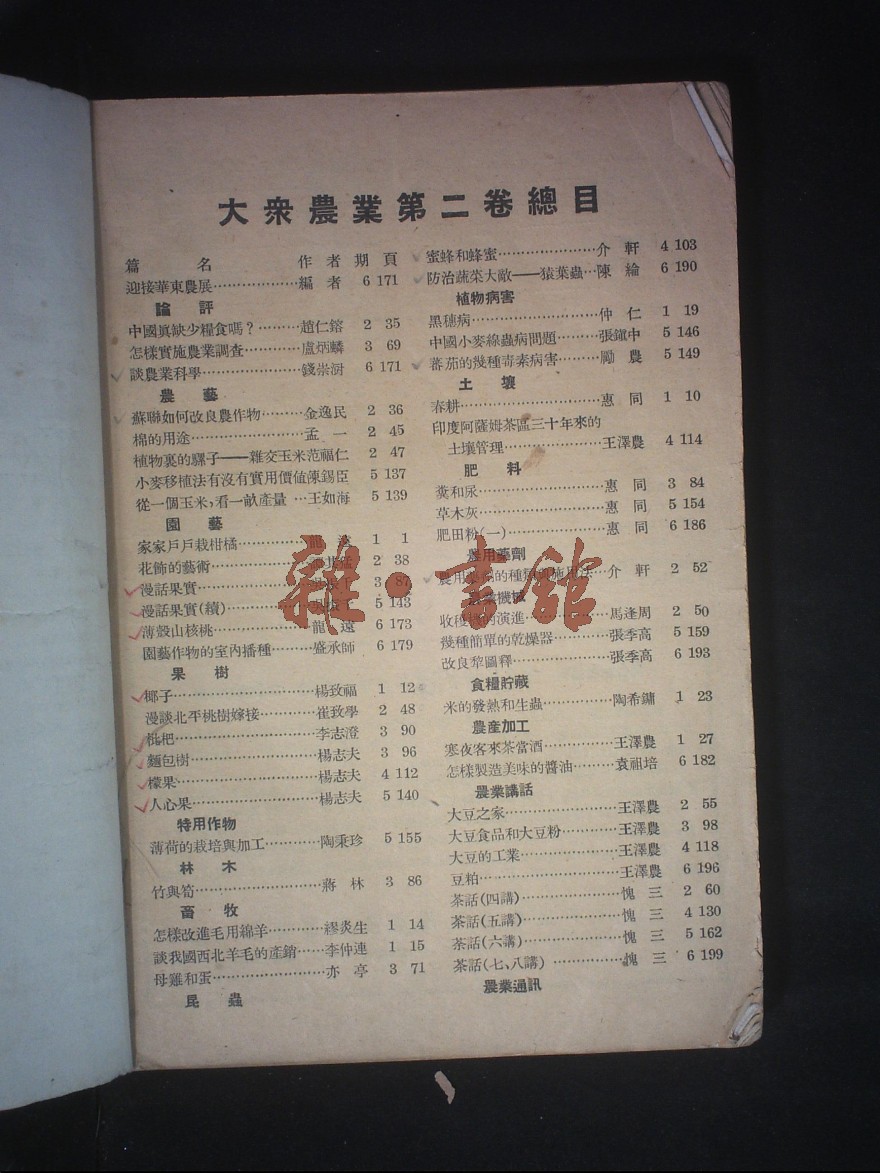 大衆農業第二卷總目
篇 名 作者 期 頁
迎接華東農展………………編 者 6 171
論 評
中國眞缺少糧食嗎？………趙仁鎔 2 35
怎樣實施農業調查…………盧炳麟 3 69
談農業科學…………………錢崇澍 6 171
農 藝
蘇聯如何改良農作物………金逸民 2 36
棉的用途……………………孟 一 2 45
植物裏的騾子——雜交玉米范福仁 2 47
小麥移植法有沒有實用價値陳錫臣 5 137
從一個玉米，看一畝產量…王如海 5 139
園 藝
家家戶戶栽柑橘 1 1
花飾的藝術 2 38
漫話果實 3 87
漫話果實(續) 5 143
薄殼山核桃…………………龍 遠 6 173
園藝作物的室內播種………盛承師 6 179
果 樹
椰子…………………………楊致福 1 12
漫談北平桃樹嫁接…………崔致學 2 48
枇杷…………………………李志澄 3 90
麵包樹………………………楊志夫 3 96
檬果…………………………楊志夫 4 112
人心果………………………楊志夫 5 140
特用作物
薄荷的栽培與加工…………陶秉珍 5 155
林 木
竹與筍………………………蔣 林 3 86
畜 牧
怎樣改進毛用綿羊…………繆炎生 1 14
談我國西北羊毛的產銷……李仲連 1 15
母雞和蛋……………………亦 亭 3 71
昆 蟲
蜜蜂和蜂蜜…………………介 軒 4 103
防治蔬菜大敵——猿葉蟲…陳 綸 6 190
植物病害
黑穗病………………………仲 仁 1 19
中國小麥線蟲病問題………張鎭中 5 146
蕃茄的幾種毒素病害………勵 農 5 149
土 壤
春耕…………………………惠 同 1 10
印度阿薩姆茶區三十年來的
土壤管理……………………王澤農 4 114
肥 料
糞和尿………………………惠 同 3 84
草木灰………………………惠 同 5 154
肥田粉(一)…………………惠 同 6 186
農用藥劑
農用 的種類 施用法…介 軒 2 52
機械
收 的演進………………馬逢周 2 50
幾種簡單的乾燥器…………張季高 5 159
改良犂圖釋…………………張季高 6 193
食糧貯藏
米的發熱和生蟲……………陶希鏞 1 23
農產加工
寒夜客來茶當酒……………王澤農 1 27
怎樣製造美味的醬油………袁祖培 6 182
農業講話
大豆之家……………………王澤農 2 55
大豆食品和大豆粉…………王澤農 3 98
大豆的工業…………………王澤農 4 118
豆粕…………………………王澤農 6 196
茶話(四講)…………………愧 三 2 60
茶話(五講)…………………愧 三 4 130
茶話(六講)…………………愧 三 5 162
茶話(七、八講)……………愧 三 6 199
農業通訊
雜·書館